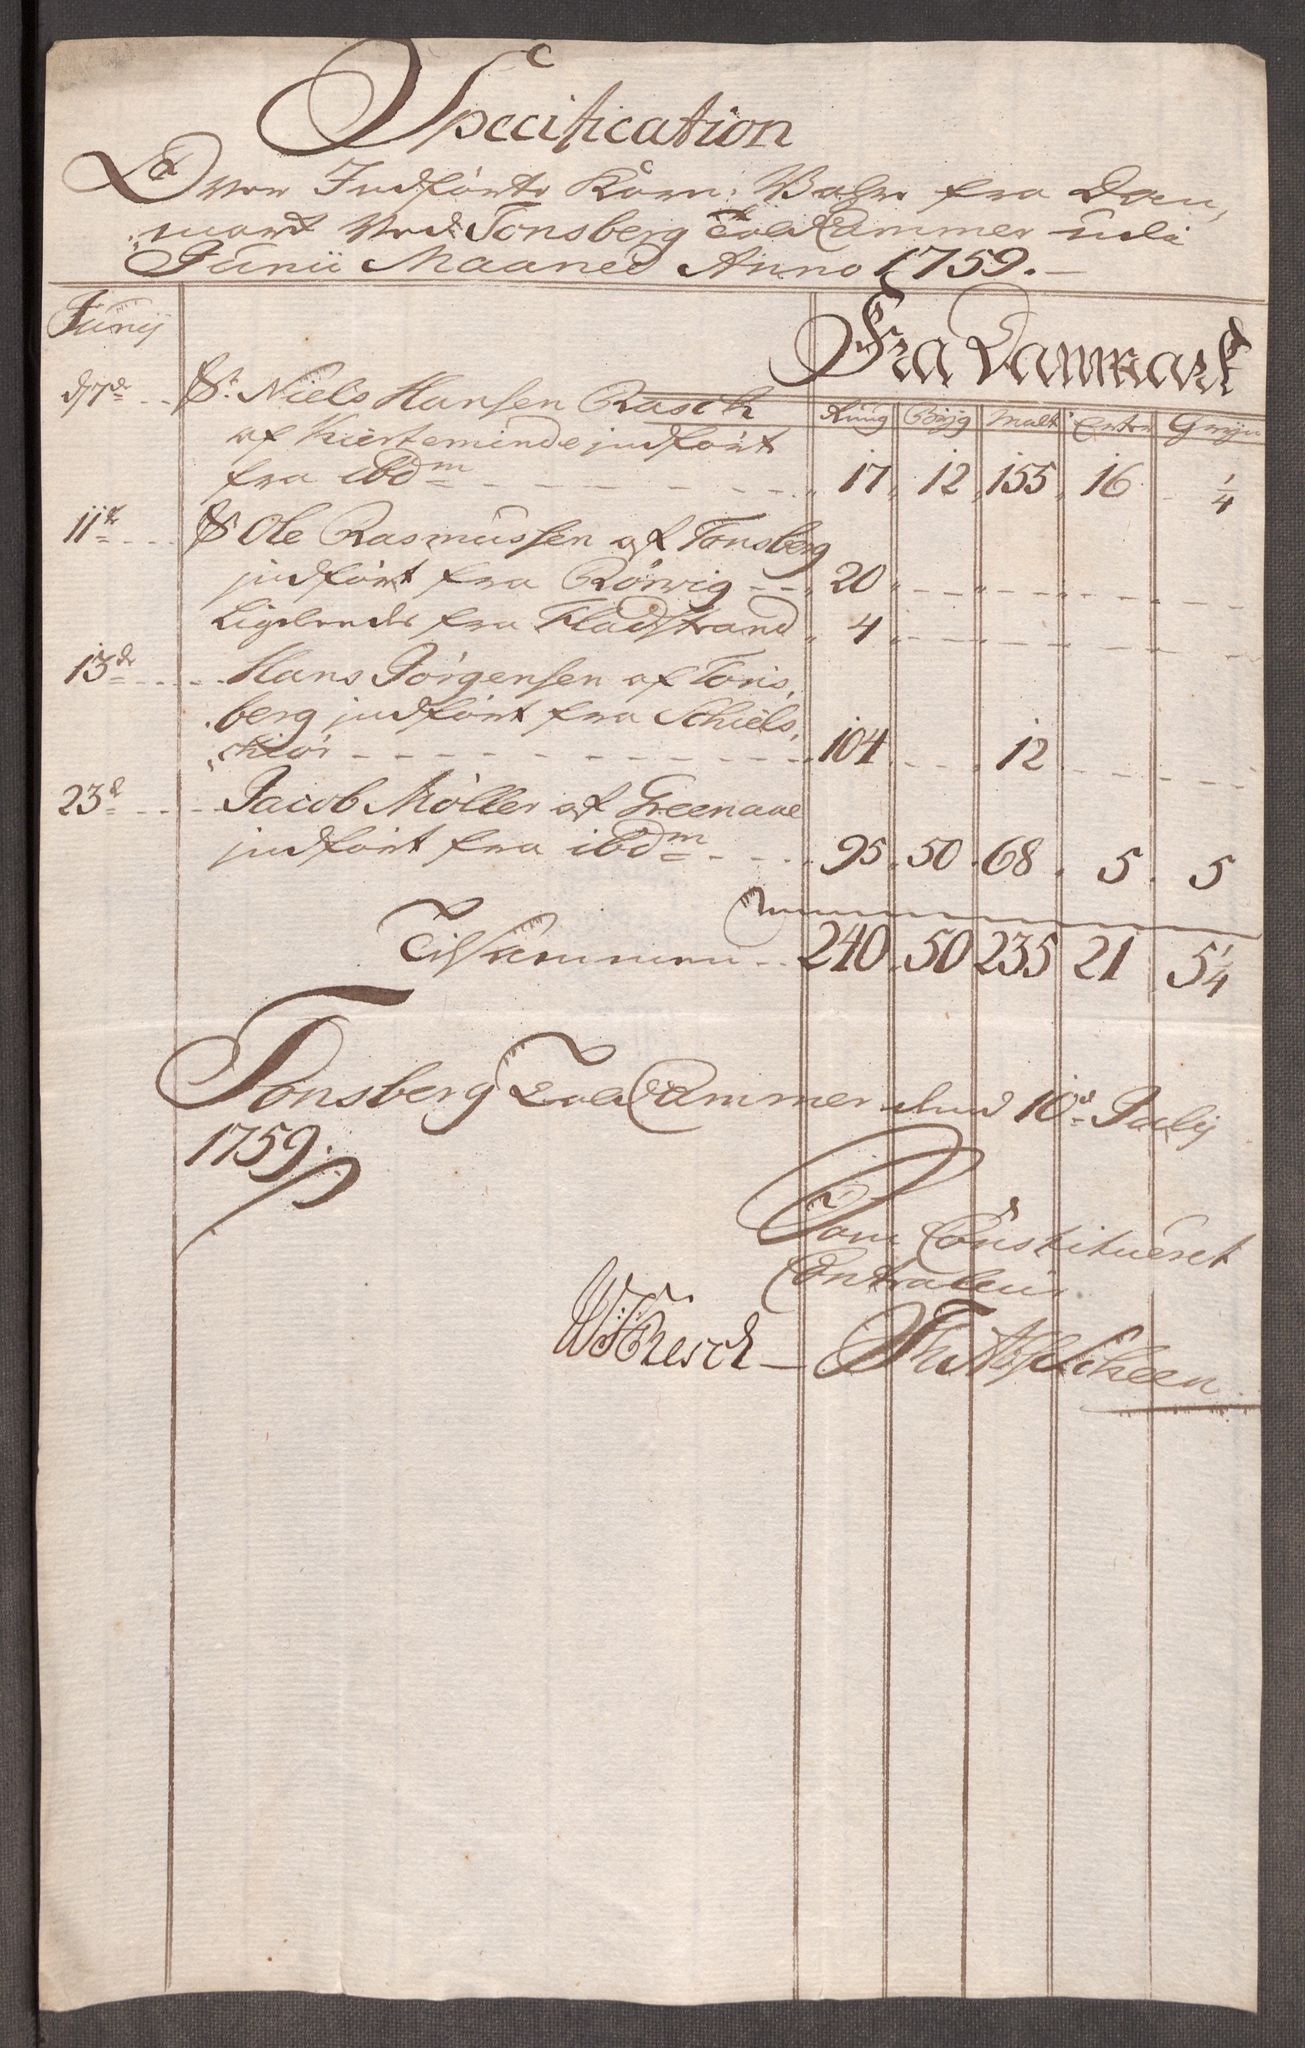 Specification
Over Indförte Korn: Vahre fra Dan,
,mark Ved Tonsberg ToldCammer udi
Junii Maaned Anno 1759.
Junij
Fra Danmark
Rüug Bÿg Malt Erter Gryn
d 7de Sr. Niels Hansen Rasch
af Kierteminde indfört
fra ibdm 17 12 155 16 1/4
11te S Ole Rasmussen af Tonsberg
indfört fra Rörvig 20
Ligeleedes fra Fladstrand 4
13de Hans Jörgensen af Tons,
,berg indfört fra Schiels,
,chiör 104 12
23d Jacob Möller af Greenaae
indfört fra ibdm 95 50 68 5 5
Tilsammen 240 50 235 21 5 1/4
Tonsberg ToldCammer dend 10d Julij
1759.
Som Constitueret
Contraleur
Resch